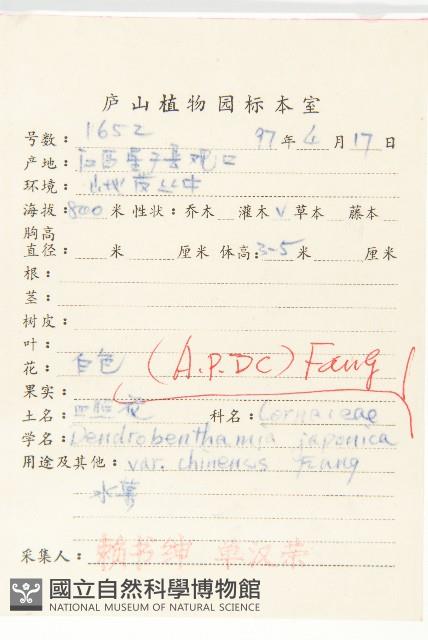 庐山植物园标本室
号数: 1652 97年4月17日
产地: 江西星子县观口
环境: 山地 丛中
海拔: 800米 性状: 乔木 灌木 v 草本 藤本
胸高
直径: 米 厘米 体高: 3-5米 厘米
根:
茎:
树皮:
叶:
花: 白色 (A.P.DC) Fang
果实:
土名: 四照花 科名: Cornaceae
学名: Dendrobenthamia japonica
用途及其他: var. chinensis Fang
采集人: 赖书绅 单汉荣
國立自然科學博物館
NATIONAL MUSEUM OF NATURAL SCIENCE